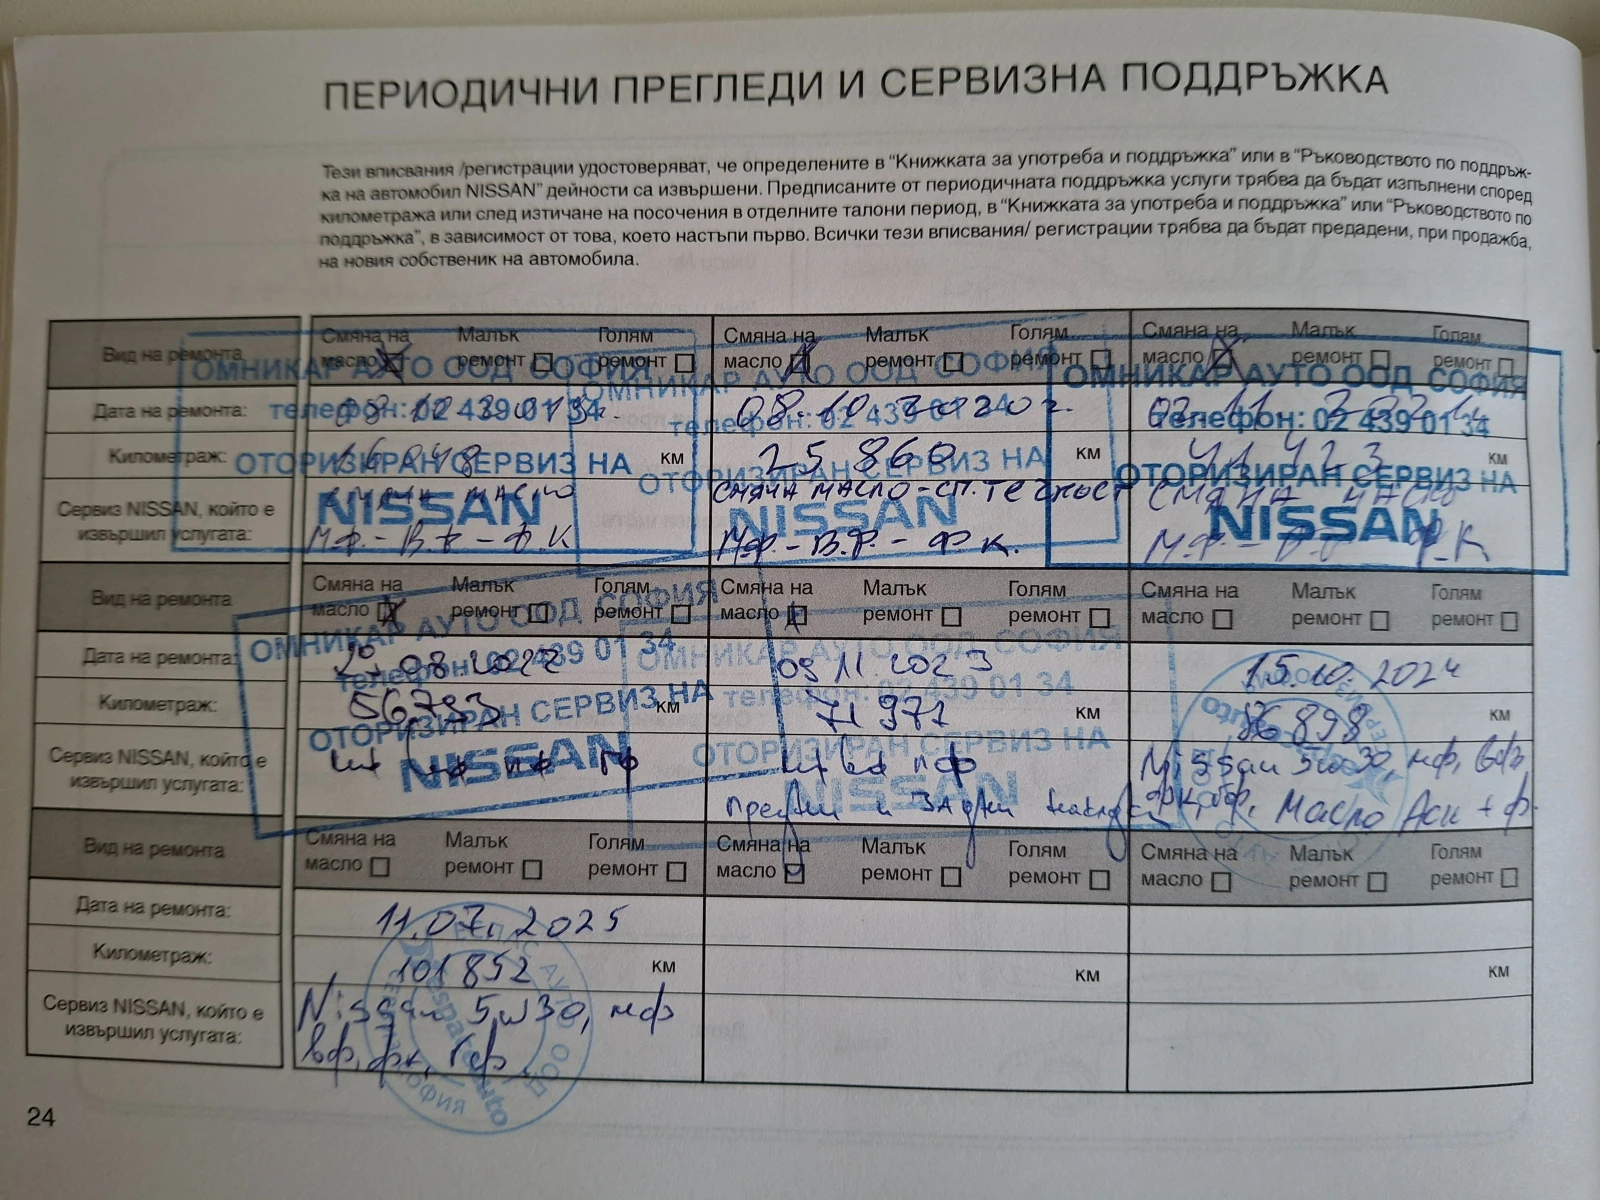 ПЕРИОДИЧНИ ПРЕГЛЕДИ И СЕРВИЗНА ПОДДРЪЖКА
Тези вписвания /регистрации удостоверяват, че определените в “Книжката за употреба и поддръжка” или в “Ръководството по поддръж-
ка на автомобил NISSAN” дейности са извършени. Предписаните от периодичната поддръжка услуги трябва да бъдат изпълнени според
километража или след изтичане на посочения в отделните талони период, в “Книжката за употреба и поддръжка” или “Ръководството по
поддръжка”, в зависимост от това, което настъпи първо. Всички тези вписвания/ регистрации трябва да бъдат предадени, при продажба,
на новия собственик на автомобила.
Вид на ремонта
Смяна на масло Малък ремонт Голям ремонт
Смяна на масло Малък ремонт Голям ремонт
Смяна на масло Малък ремонт Голям ремонт
Дата на ремонта:
08.10.2020 г.
Километраж:
16048 км
25 860 км
41 423 км
Сервиз NISSAN, който е
извършил услугата:
СМЯНА МАСЛО
М.Ф. - В.Ф - Ф.К
СМЯНА МАСЛО - СП. ТЕЧНОСТ
М.Ф. - В.Ф. - Ф.К.
СМЯНА МАСЛО
Ф.К
ОМНИКАР АУТО ООД СОФИЯ
телефон: 02 439 01 34
ОТОРИЗИРАН СЕРВИЗ НА
NISSAN
ОМНИКАР АУТО ООД СОФИЯ
телефон: 02 439 01 34
ОТОРИЗИРАН СЕРВИЗ НА
NISSAN
ОМНИКАР АУТО ООД СОФИЯ
телефон: 02 439 01 34
ОТОРИЗИРАН СЕРВИЗ НА
NISSAN
Вид на ремонта
Смяна на масло Малък ремонт Голям ремонт
Смяна на масло Малък ремонт Голям ремонт
Смяна на масло Малък ремонт Голям ремонт
Дата на ремонта:
08.2022
09.11.2023
15.10.2024
Километраж:
56793 км
71 971 км
86 898 км
Сервиз NISSAN, който е
извършил услугата:
Предни и Задни накладки
Nissan 5w30, мф, вф,
Масло Аси + ф.
ОМНИКАР АУТО ООД СОФИЯ
телефон: 02 439 01 34
ОТОРИЗИРАН СЕРВИЗ НА
NISSAN
ОМНИКАР АУТО ООД СОФИЯ
телефон: 02 439 01 34
ОТОРИЗИРАН СЕРВИЗ НА
NISSAN
Вид на ремонта
Смяна на масло Малък ремонт Голям ремонт
Смяна на масло Малък ремонт Голям ремонт
Смяна на масло Малък ремонт Голям ремонт
Дата на ремонта:
11.07.2025
Километраж:
101852 км
км
км
Сервиз NISSAN, който е
извършил услугата:
Nissan 5w30, мф
вф, фк, гф
24